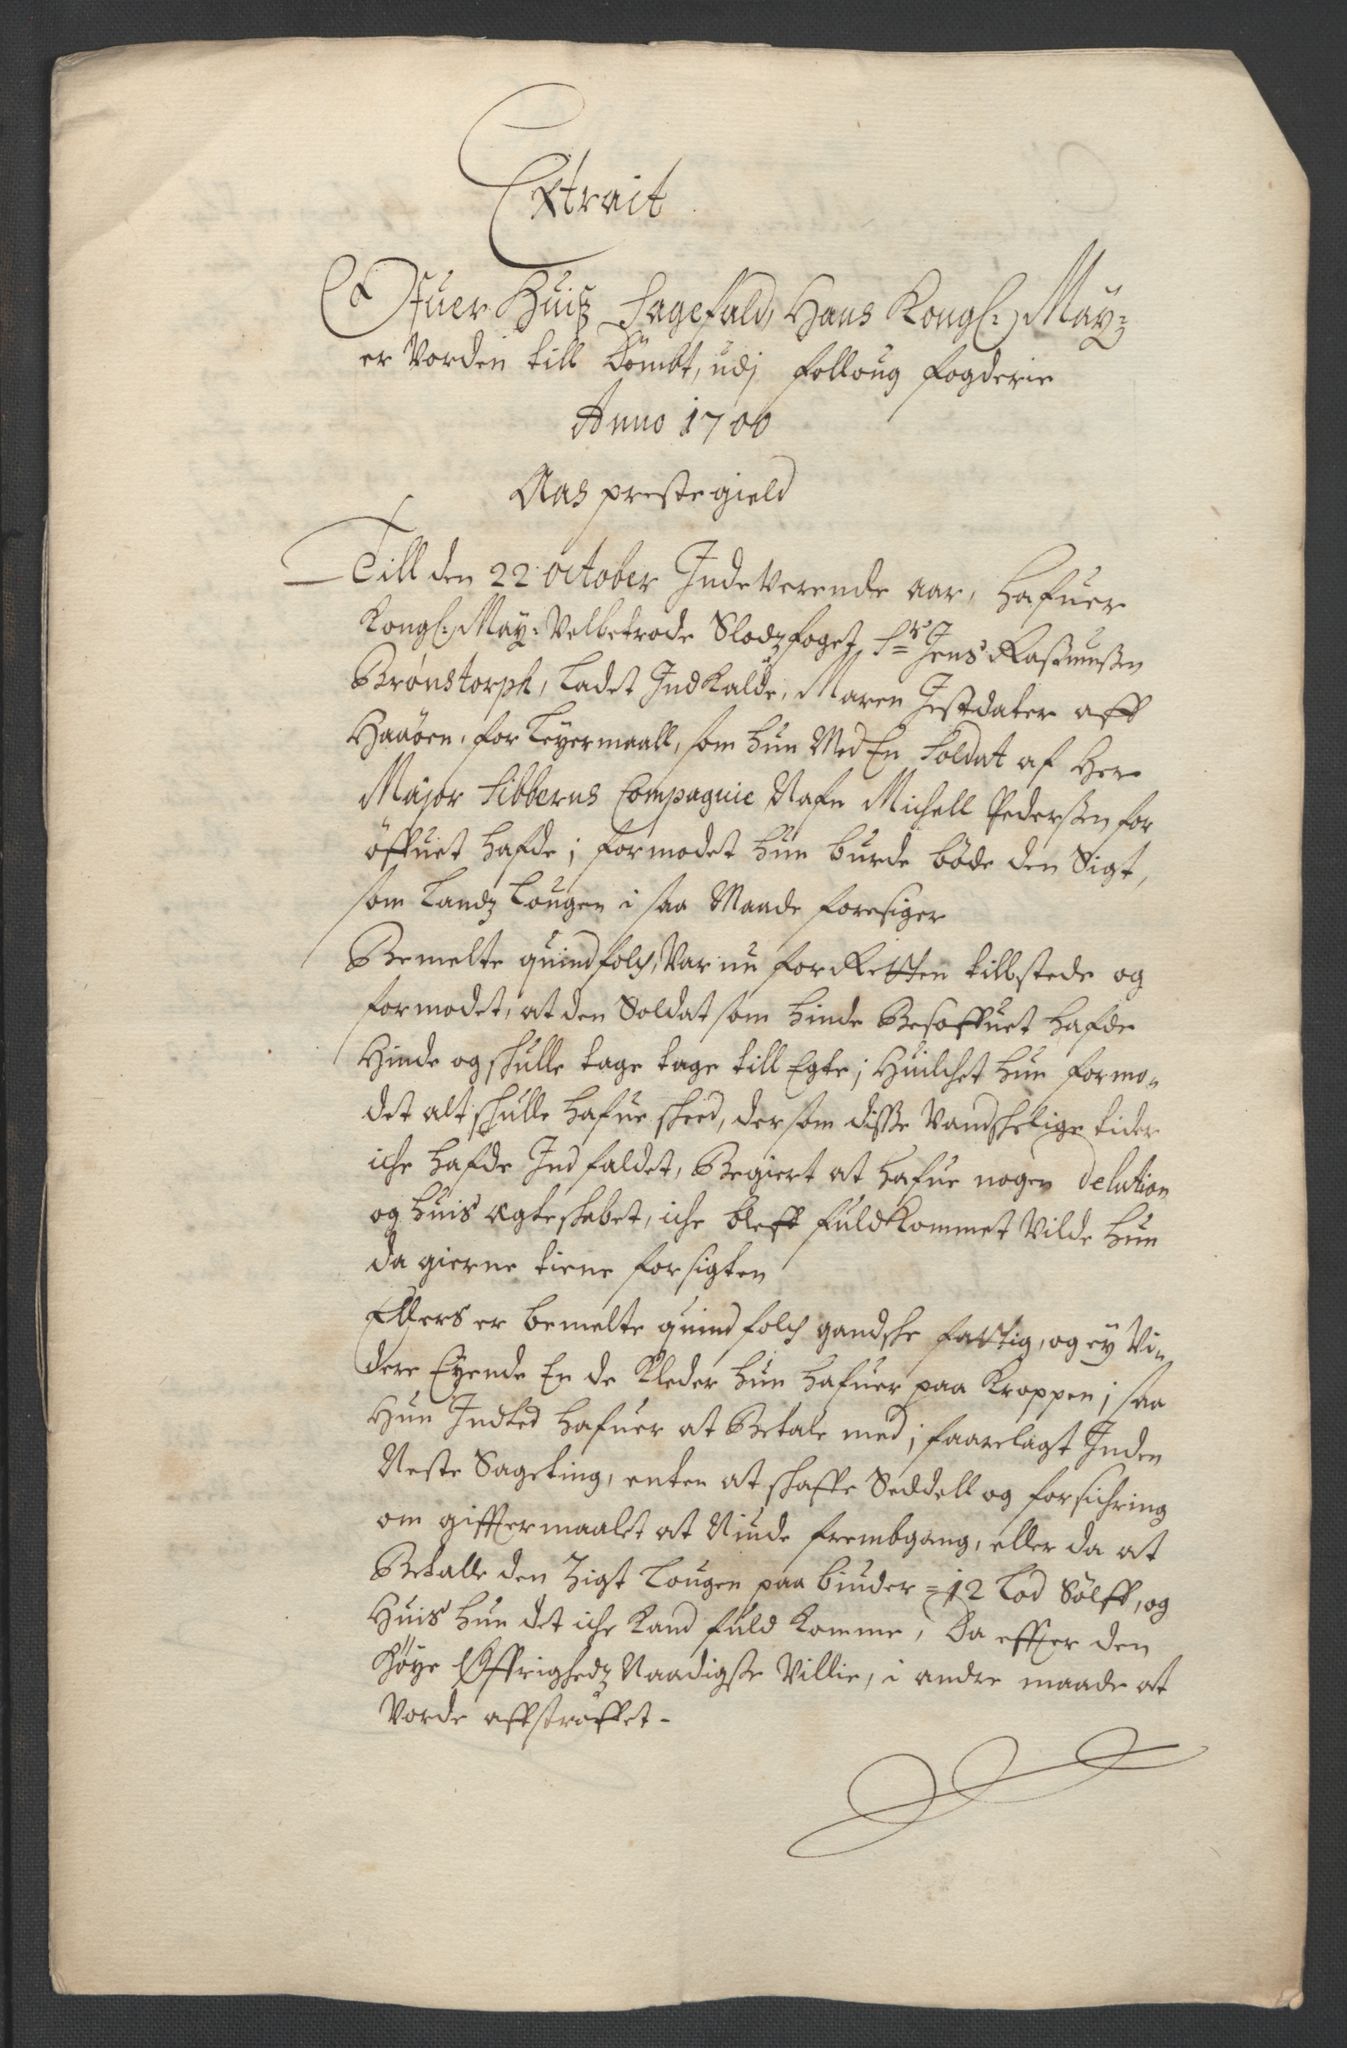 Extrait
Ofuer Huis Sagefald, Hans Kongl: May:
er Vorden till Dömbt, udj Folloug fogderie
Anno 1700
Aas prestegield
Till den 22 October Indeverende aar, hafuer
Kongl: May: Velbetrode Slodzfoget Sr Jens Rasmussen
Brønstorph, Ladet Indkalde, Maren Jestdater aff
Haaöen, for Leyermaall, som hun Med En Soldat af Her
Major Sibberns Compagnie Nafn Michell Pedersen for
öffuet hafde; formodet hun burde böde den Sigt,
som Landz Lougen i saa Maade foresiger
Bemelte quindfolch, Var nu for Retten tillstede og
formodet, at den Soldat som hinde Besoffuet hafde
Hinde og skulle tage tage till Egte; Huilchet hun formo-
det alt skulle hafue skeed, dersom disse Vandskelige tider
iche hafde Indfaldet, Begiert at hafue nogen delation
og huis Ægteskabet, iche bleff fuldkommet Vilde hun
da gierne tiene for sigten
Ellers er bemelte quindfolch gandske fattig, og ey Vi-
dere Eyende En de Kleder hun hafuer paa Kroppen; saa
Hun Indted hafuer at Betale med; faarelagt Inden
Neste Sageting, enten at skaffe Seddell og forsichring
om gifftermaalet at Niude frembgang, eller da at
Betalle den Zigt Lougen paa binder = 12 Lod Sölff, og
Huis hun det iche kand fuldkomme, Da effter den
höye Øffrighedz Naadigste Villie, i andre maade at
Vorde affstraffet -